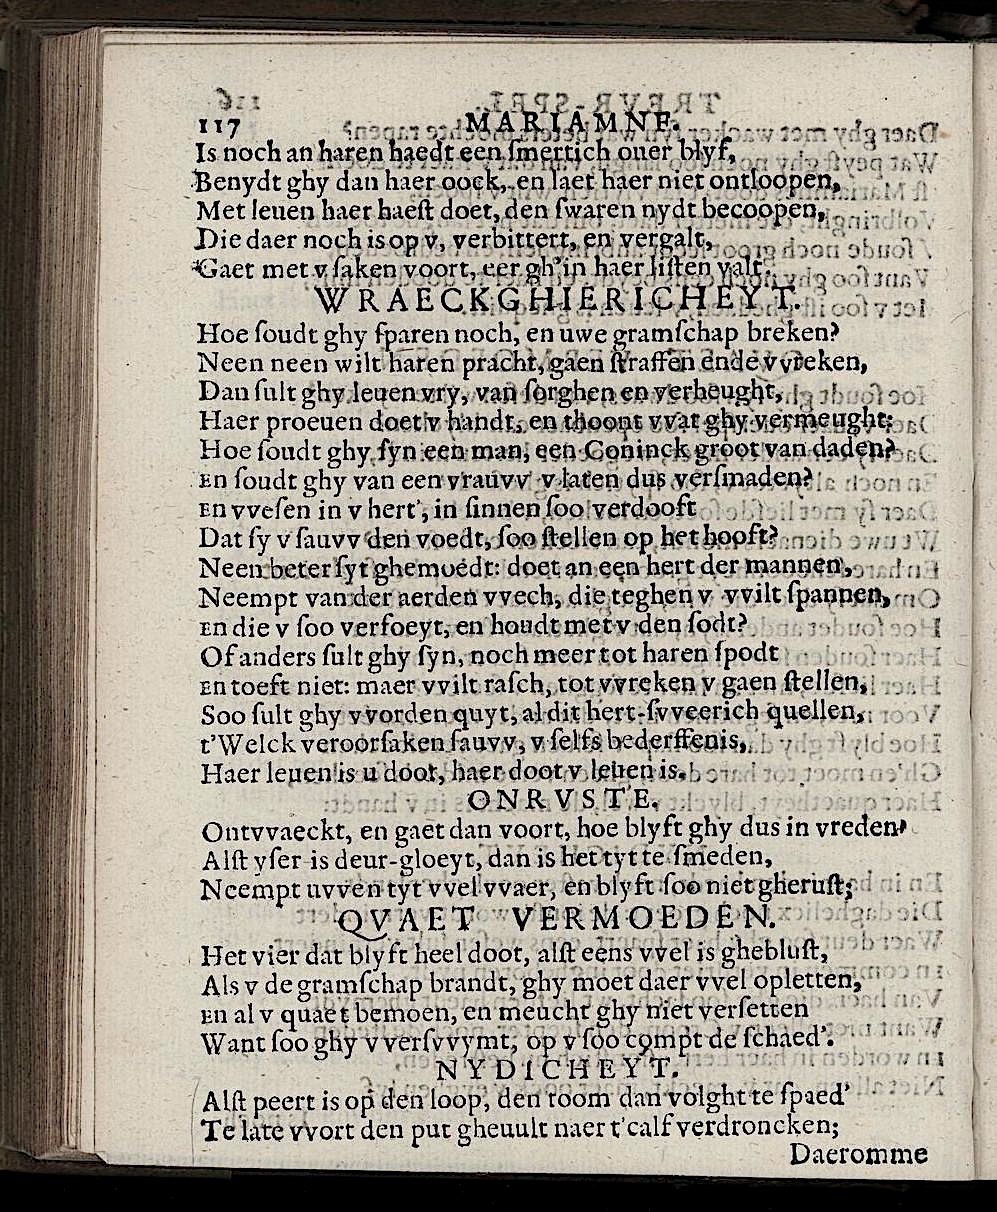 117 MARIAMNE.
Is noch an haren haedt een ſmertich ouer blyf,
Benydt ghy dan haer oock, en laet haer niet ontloopen,
Met leuen haer haeſt doet, den ſwaren nydt becoopen,
Die daer noch is op v, verbittert, en vergalt,
Gaet met v ſaken voort, eer gh'in haer liſten valt.
WRAECKGHIERICHEYT.
Hoe ſoudt ghy ſparen noch, en uwe gramſchap breken?
Neen neen wilt haren pracht, gaen ſtraffen ende vvreken,
Dan ſult ghy leuen vry, van ſorghen en verheught,
Haer proeuen doet v handt, en thoont vvat ghy vermeught:
Hoe ſoudt ghy ſyn een man, een Coninck groot van daden?
En ſoudt ghy van een vrauvv v laten dus verſmaden?
En vveſen in v hert', in ſinnen ſoo verdooft
Dat ſy v ſauvv den voedt, ſoo ſtellen op het hooft?
Neen beter ſyt ghemoedt: doet an een hert der mannen,
Neempt van der aerden vvech, die teghen v vvilt ſpannen,
En die v ſoo verfoeyt, en houdt met v den ſodt?
Of anders ſult ghy ſyn, noch meer tot haren ſpodt
En toeft niet: maer vvilt raſch, tot vvreken v gaen ſtellen,
Soo ſult ghy vvorden quyt, al dit hert-ſvveerich quellen,
t'Welck veroorſaken ſauvv, v ſelfs bederffenis,
Haer leuen is u doot, haer doot v leuen is.
ONRVSTE.
Ontvvaeckt, en gaet dan voort, hoe blyft ghy dus in vreden,
Alſt yſer is deur-gloeyt, dan is het tyt te ſmeden,
Neempt uvven tyt vvel vvaer, en blyft ſoo niet gheruſt;
QVAET VERMOEDEN.
Het vier dat blyft heel doot, alſt eens vvel is ghebluſt,
Als v de gramſchap brandt, ghy moet daer vvel opletten,
En al v quaet bemoen, en meucht ghy niet verſetten
Want ſoo ghy vverſvvymt, op v ſoo compt de ſchaed'.
NYDICHEYT.
Alſt peert is op den loop, den toom dan volght te ſpaed'
Te late vvort den put gheuult naer t'calf verdroncken;
Daeromme